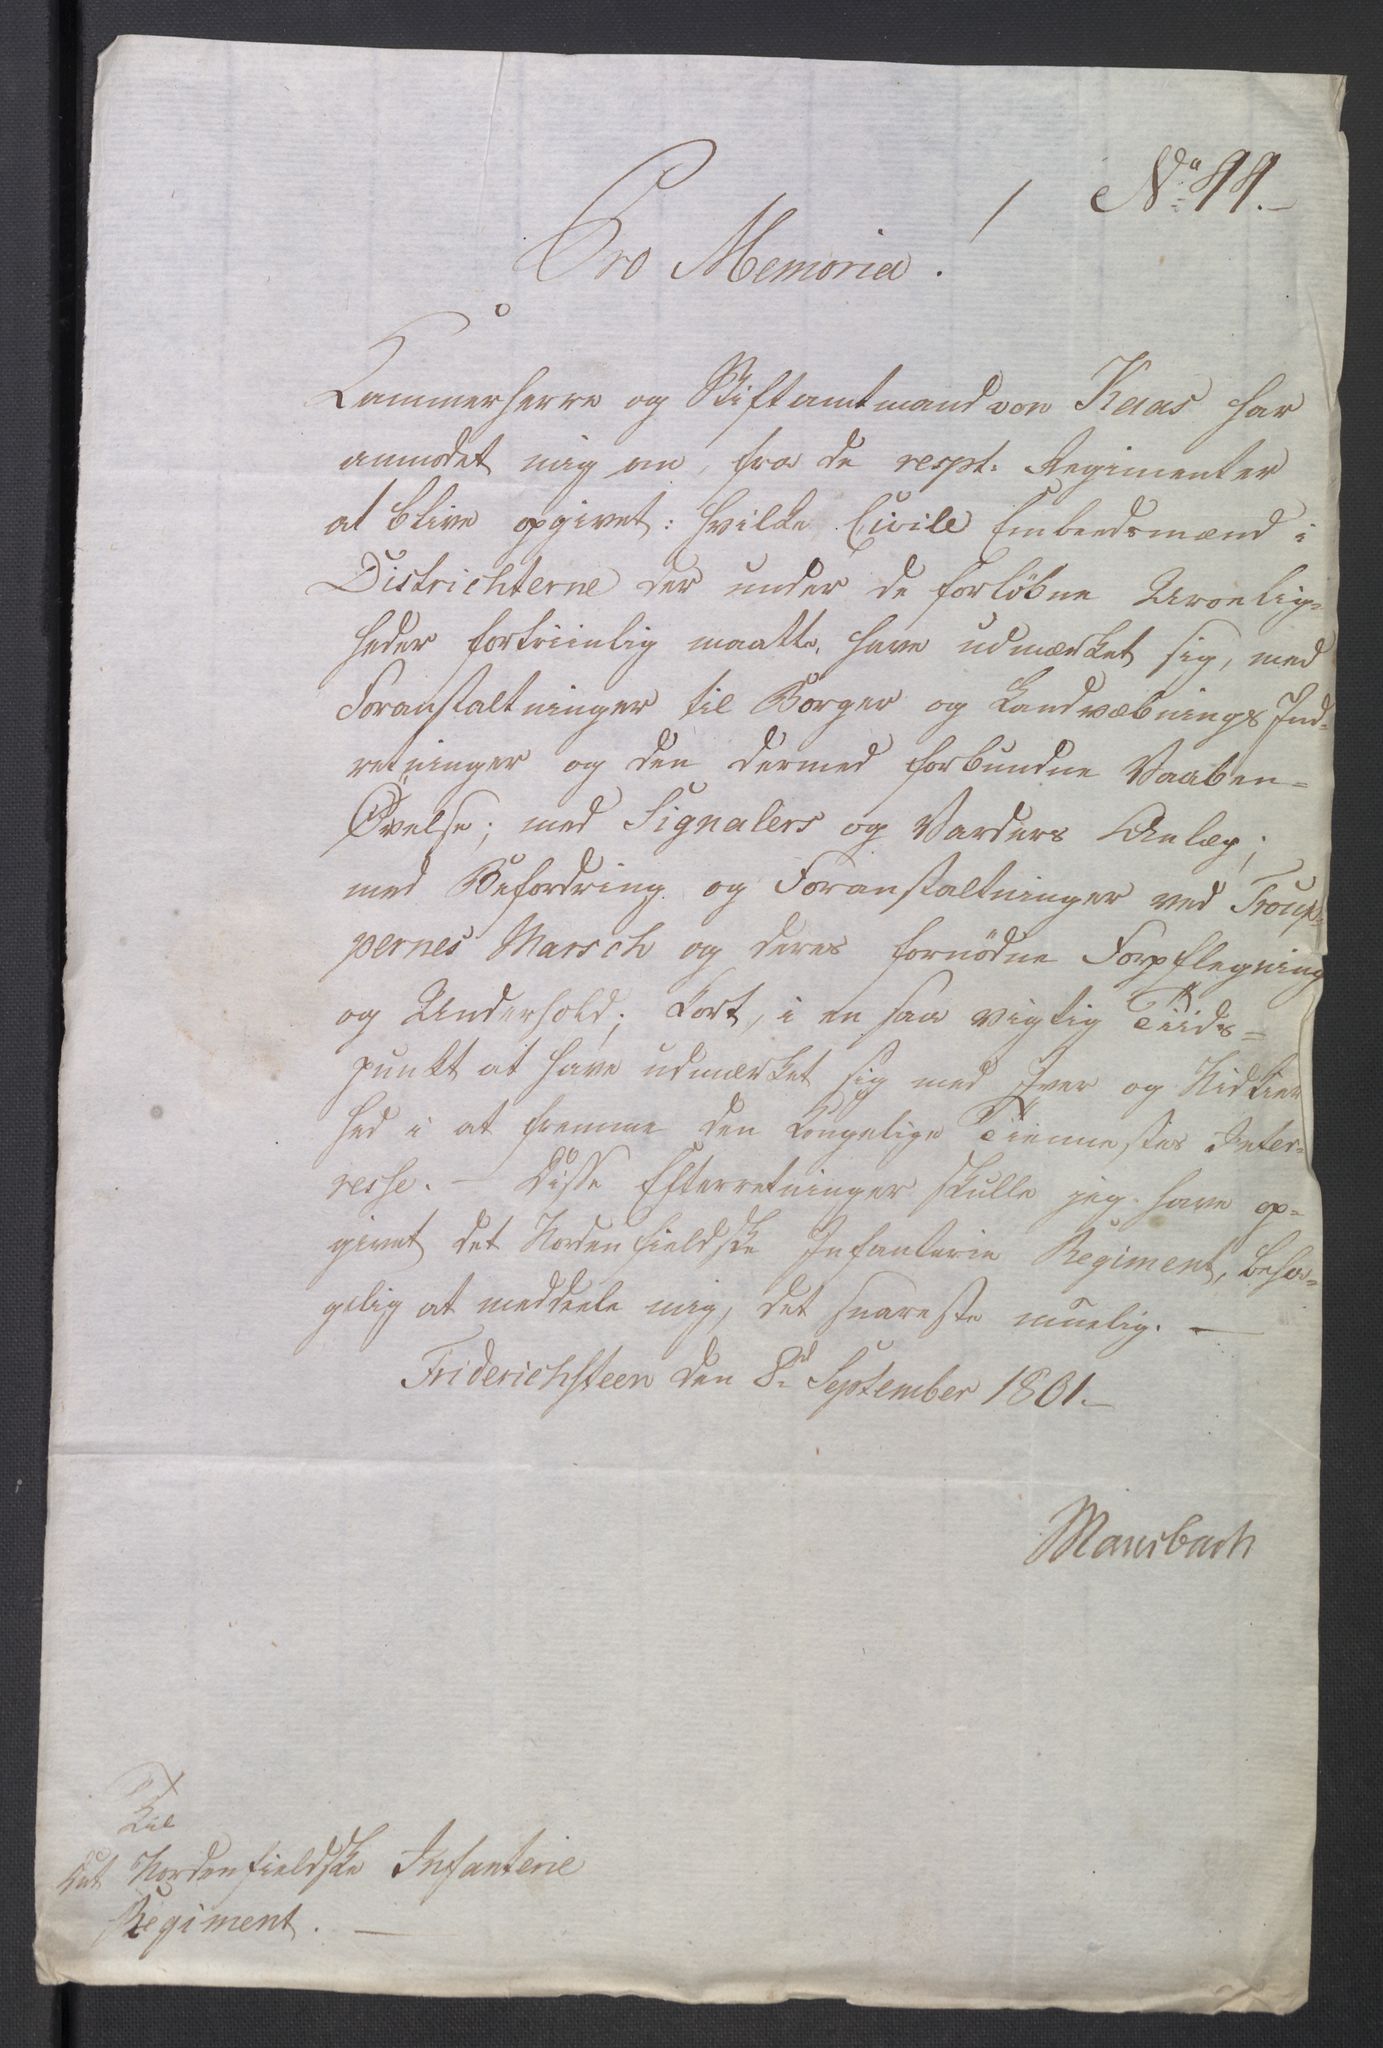 No 99.
Pro Memoria.
Kammerherre og Stiftamtmand von Kaas har
anmodet mig om, fra de respt: Regimenter
at blive opgivet: hvilke Civile Embeedsmænd i
Districhterne der under de forløbne Uroelig=
heder fortriinlig maatte have udmærket sig, med
Foranstaltninger til Borger og Landvæbnings Ind=
retninger og den dermed forbundne Vaaben=
Øvelse; med Signalers og Varders Anlæg;
med Befordring og Foranstaltninger ved Troup=
pernes Marsch og deres fornødne Forpflegning
og Underhold; kort, i en saa vigtig Tiids=
punkt at have udmærket sig med Iver og Nidkier
hed i at fremme den Kongelige Tiennestes Inter=
resse. – Disse Efterretninger skulle jeg have op=
givet det Nordenfieldske Infanterie Regiment, beha=
gelig at meddeele mig, det snareste muelig. —
Friderichsteen den 8d September 1801.—
Mansbach
Til
Det Nordenfieldske Infanterie
Regiment. —